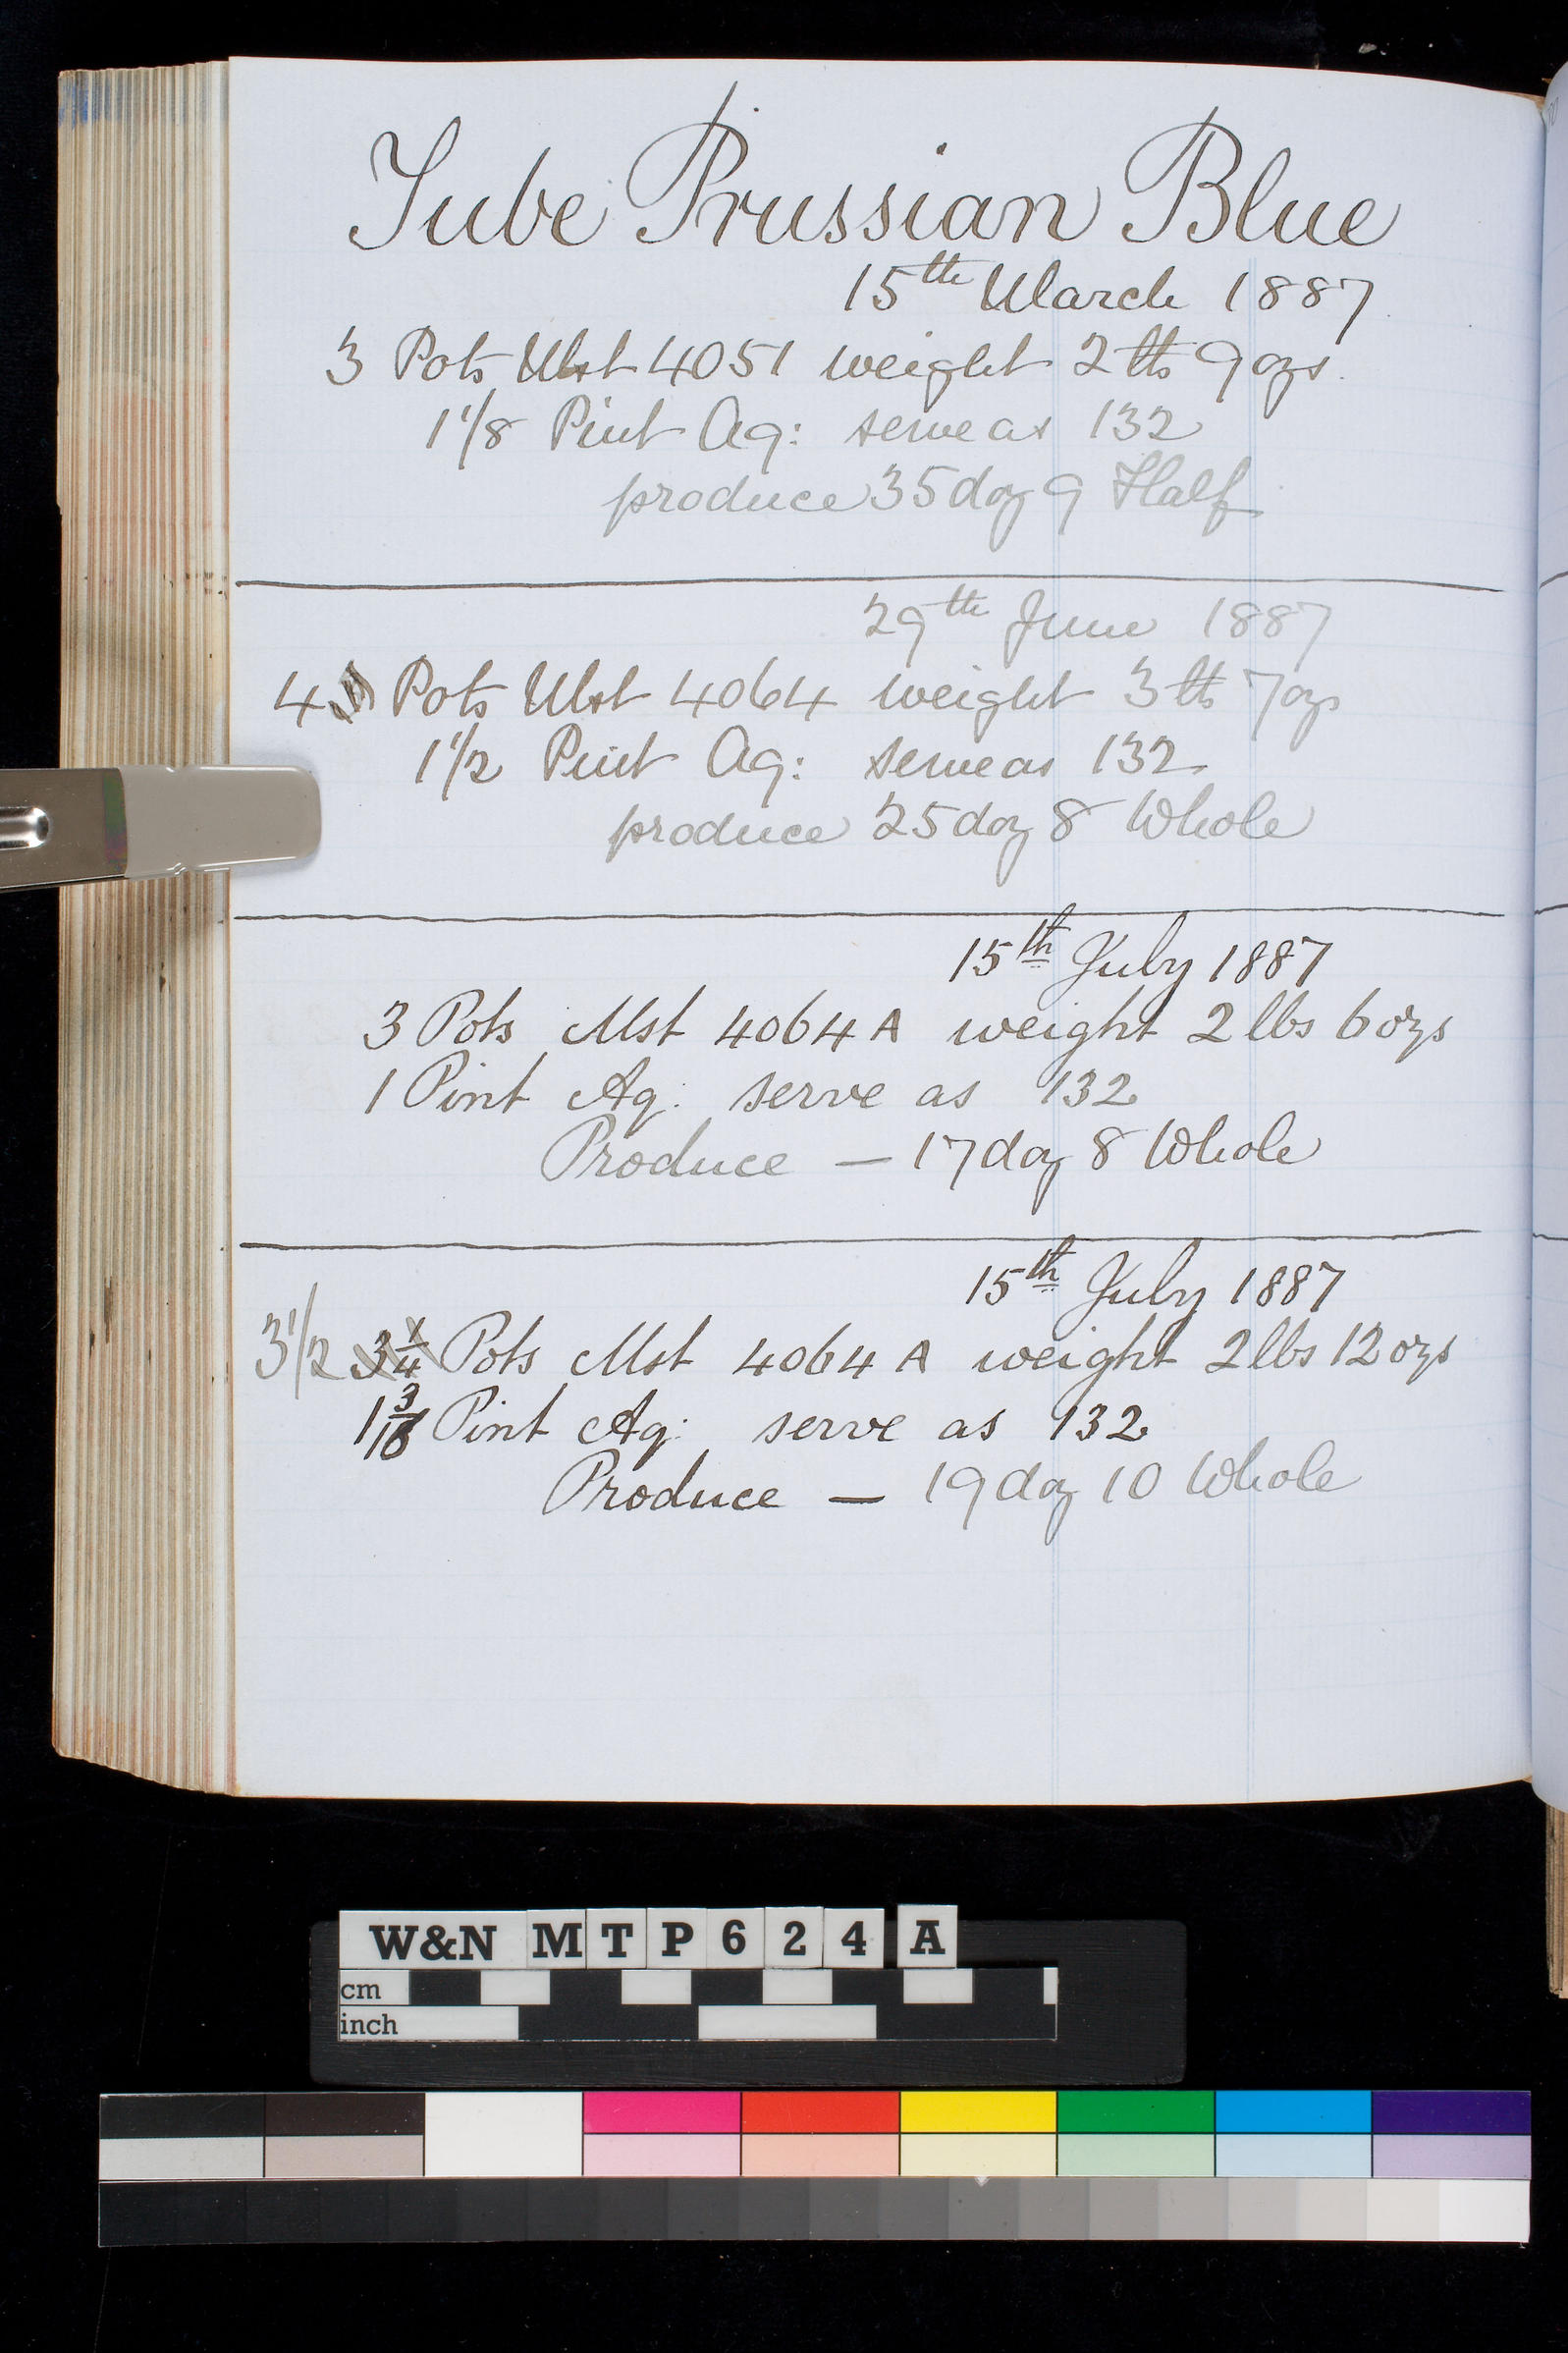 Tube Prussian Blue
15th March 1887
3 Pots Mst 4051 weight 2 lbs 9 ozs.
1 1/8 Pint Aq: serve as 132
produce 35 doz 9 Half
29th June 1887
4 Pots Mst 4064 weight 3 lbs 7 ozs
1 1/2 Pint Aq: serve as 132
produce 25 doz 8 Whole
15th July 1887
3 Pots Mst 4064 A weight 2 lbs 6 ozs
1 Pint Aq: serve as 132
Produce — 17 doz 8 Whole
15th July 1887
3 1/2 3 1/4 Pots Mst 4064 A weight 2 lbs 12 ozs
1 3/16 Pint Aq: serve as 132
Produce — 19 doz 10 Whole
W&N MTP624 A
cm
inch